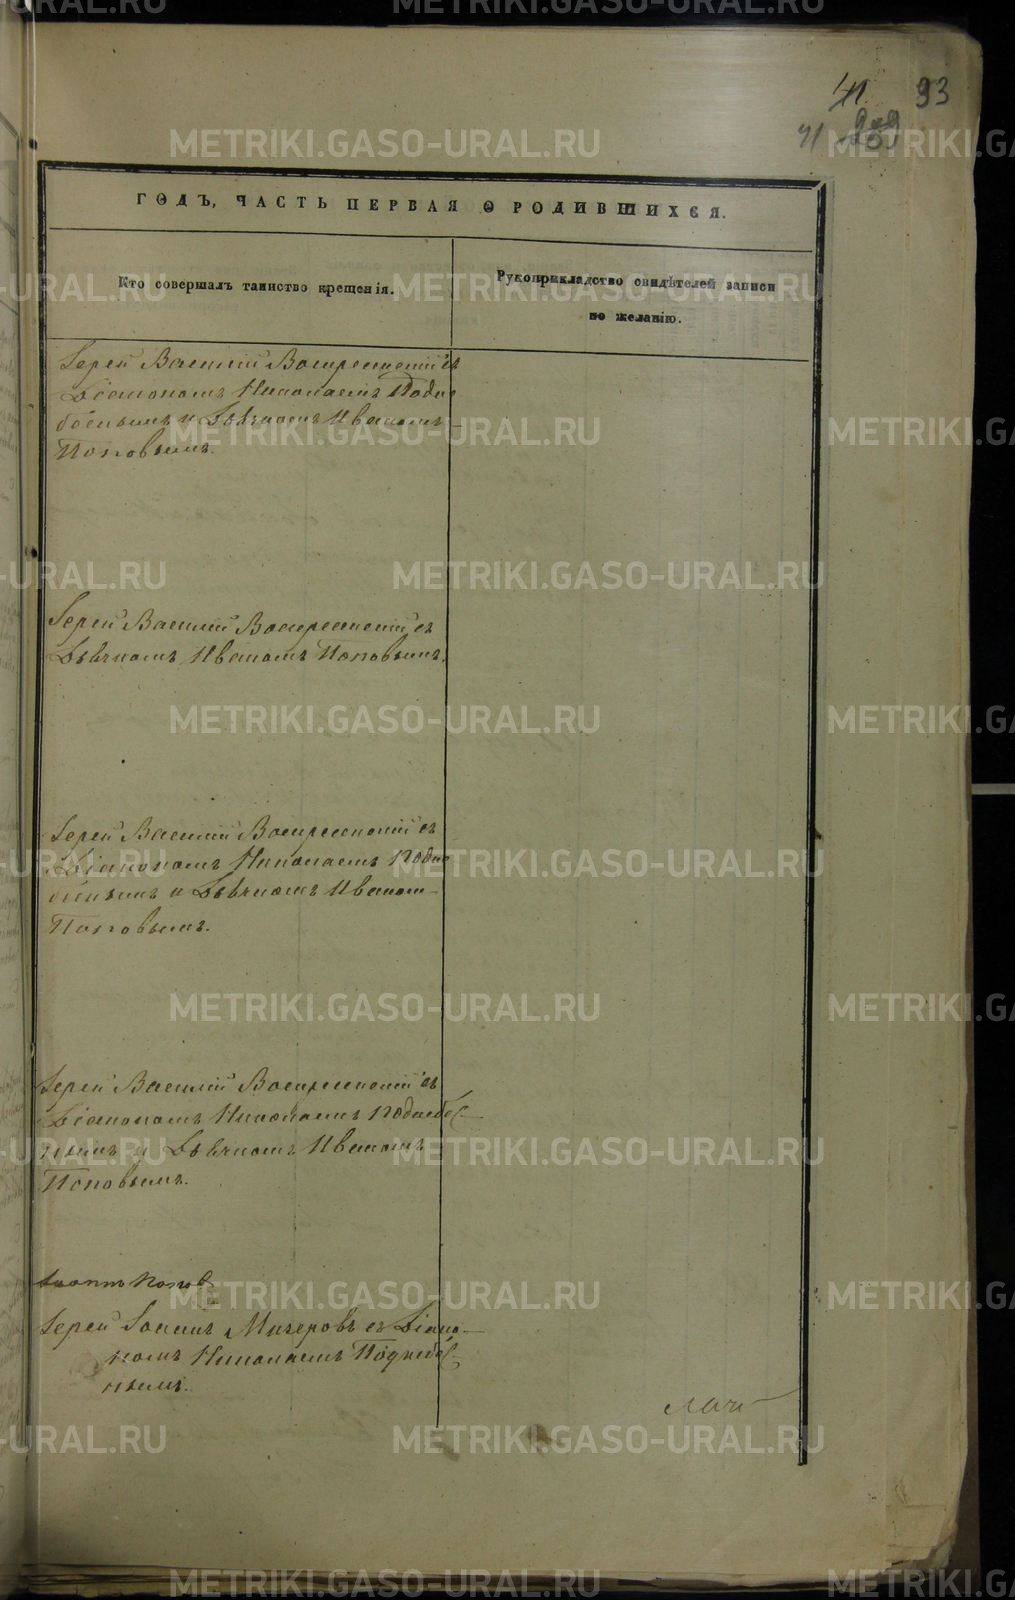 93
41
ГОДЪ, ЧАСТЬ ПЕРВАЯ О РОДИВШИХСЯ.
Кто совершалъ таинство крещенія.
Рукоприкладство свидѣтелей записи
по желанію.
Іерей Василій Воскресенскій съ
Діакономъ Николаемъ Подне
беснымъ и Дьячкомъ Иваномъ
Поповымъ.
Іерей Василій Воскресенскій съ
Дьячкомъ Иваномъ Поповымъ.
Іерей Василій Воскресенскій съ
Діакономъ Николаемъ Подне
беснымъ и Дьячкомъ Иваном
Поповымъ.
Іерей Василій Воскресенскій съ
Діакономъ Николаемъ Поднебес
нымъ и Дьячкомъ Иваномъ
Поповымъ.
Іерей Іоаннъ Мичеровъ съ Діако
номъ Николаемъ Поднебес
нымъ.
METRIKI.GASO-URAL.RU